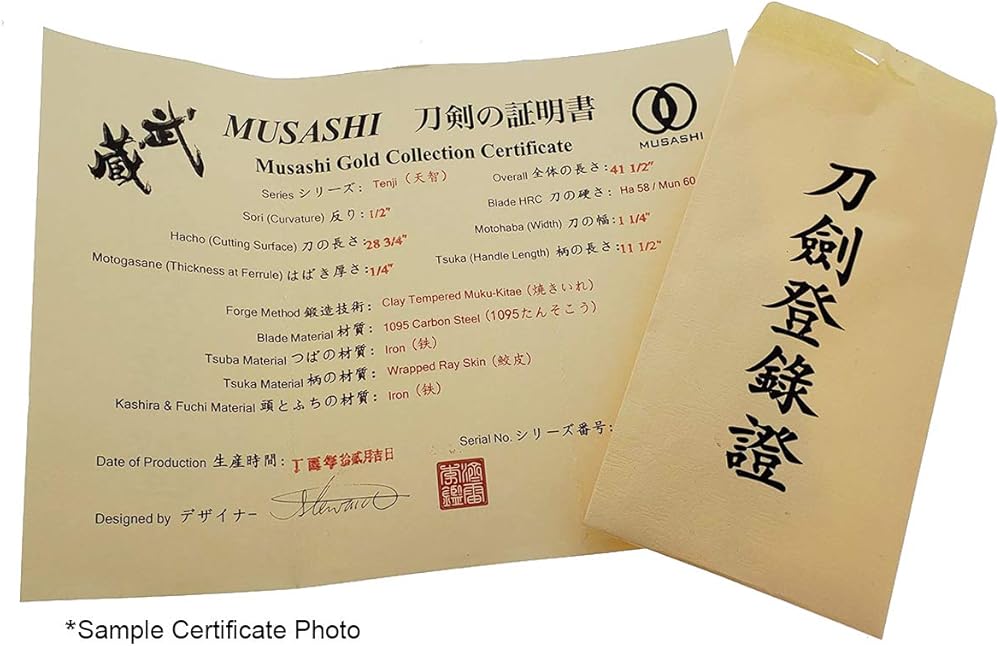 武蔵
MUSASHI 刀剣の証明書
MUSASHI
Musashi Gold Collection Certificate
Series シリーズ: Tenji (天智)
Overall 全体の長さ: 41 1/2"
Sori (Curvature) 反り: 1/2"
Blade HRC 刀の硬さ: Ha 58 / Mun 60
Hacho (Cutting Surface) 刀の長さ: 28 3/4"
Motohaba (Width) 刀の幅: 1 1/4"
Motogasane (Thickness at Ferrule) はばき厚さ: 1/4"
Tsuka (Handle Length) 柄の長さ: 11 1/2"
Forge Method 鍛造技術: Clay Tempered Muku-Kitae (焼きいれ)
Blade Material 材質: 1095 Carbon Steel (1095たんそこう)
Tsuba Material つばの材質: Iron (鉄)
Tsuka Material 柄の材質: Wrapped Ray Skin (鮫皮)
Kashira & Fuchi Material 頭とふちの材質: Iron (鉄)
Serial No. シリーズ番号:
Date of Production 生産時間: 丁酉年拾貳月吉日
Designed by デザイナー
刀劍登錄證
*Sample Certificate Photo